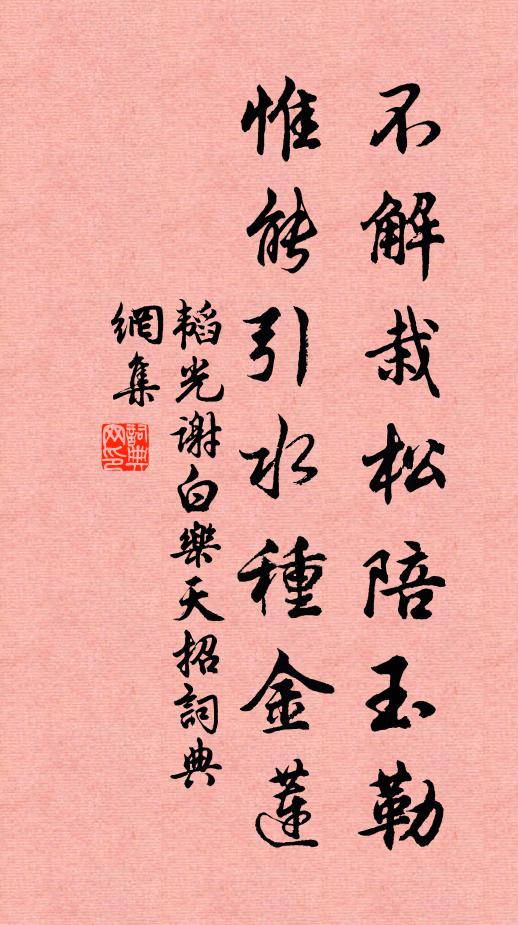 不解栽松陪玉勒
惟能引水種金蓮
韜光謝白樂天招詞典
網集
詞典
网印